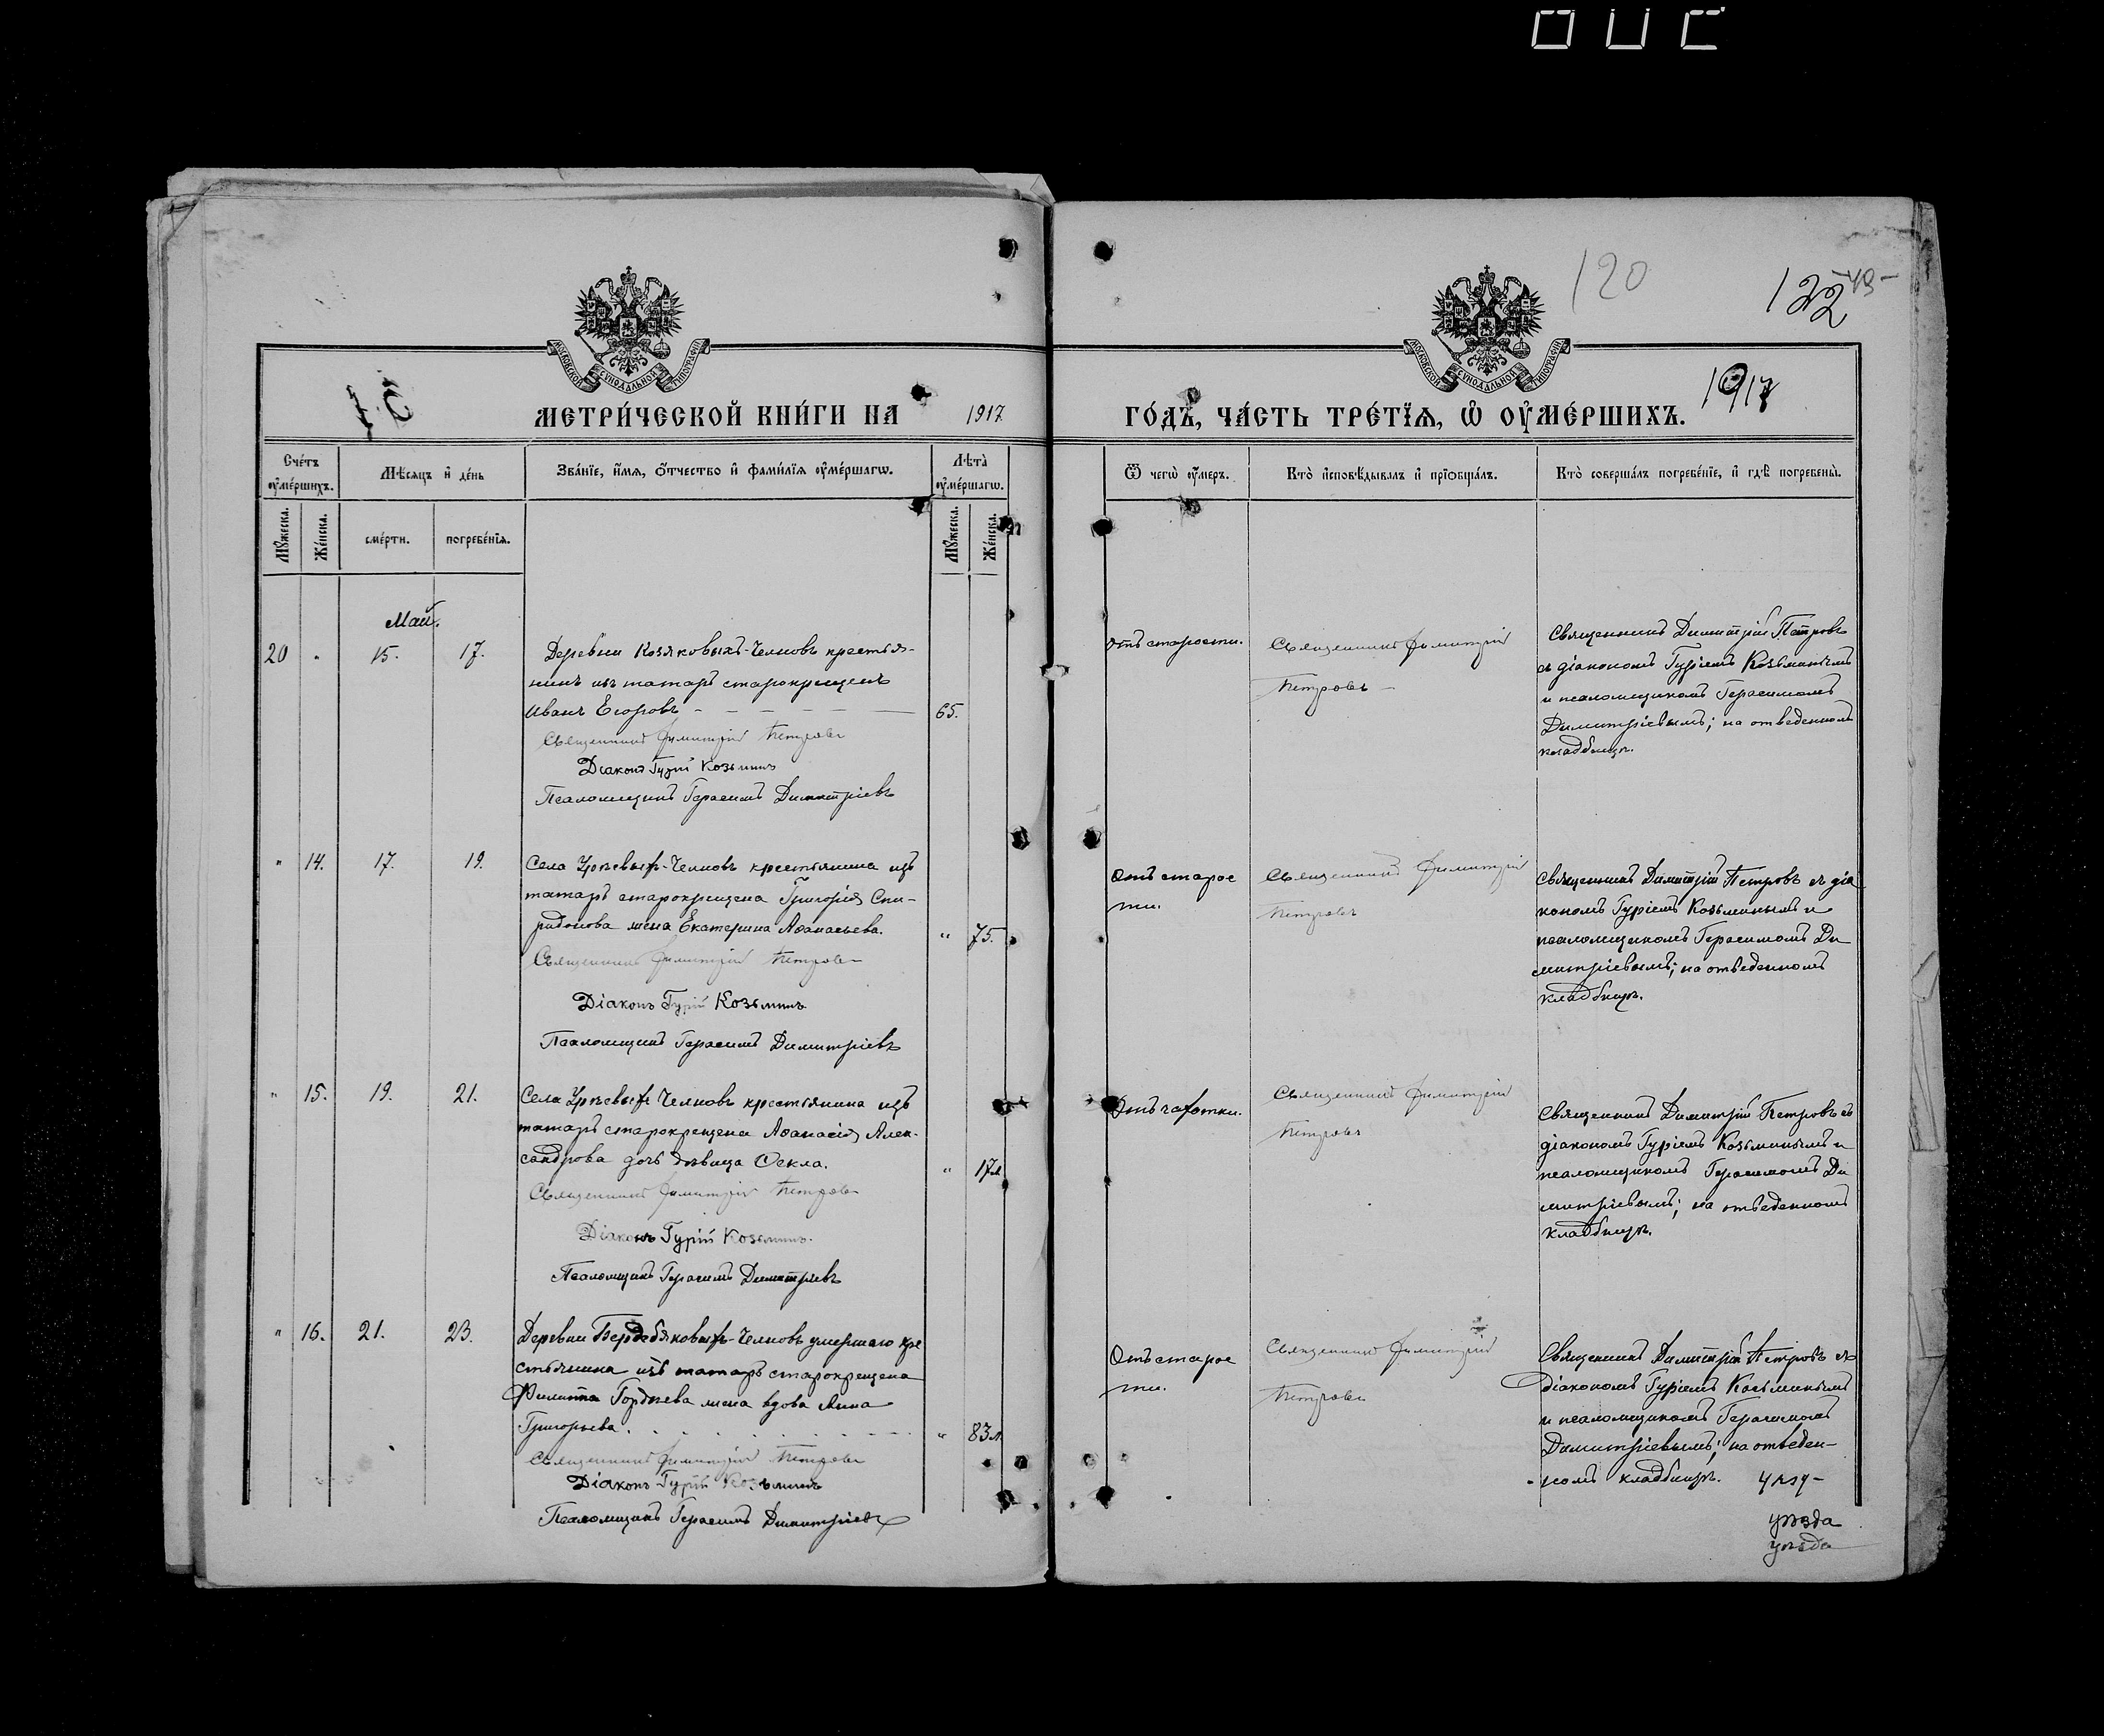 120
122
1917
МОСКОВСКОЙ СѴНОДАЛЬНОЙ ТИПОГРАФІИ
МОСКОВСКОЙ СѴНОДАЛЬНОЙ ТИПОГРАФІИ
МЕТРИ́ЧЕСКОЙ КНИ́ГИ НА 1917 ГО́ДЪ, ЧА́СТЬ ТРЕ́ТЇѦ, Ѡ҆ ОУ҆МЕ́РШИХЪ.
Сче́тъ оу҆ме́ршихъ.
Мѣ́сѧцъ и҆ де́нь
Зва́нїе, и҆́мѧ, ѻ҆́тчество и҆ фами́лїѧ оу҆ме́ршагѡ.
Лѣта̀ оу҆ме́ршагѡ.
Ѿ чегѡ̀ оу҆́меръ.
Кто̀ и҆сповѣ́дывалъ и҆ прїѡбща́лъ.
Кто̀ соверша́лъ погребе́нїе, и҆ гдѣ̀ погребены̀.
Мꙋ́жеска.
Же́нска.
сме́рти.
погребе́нїѧ.
Мꙋ́жеска.
Же́нска.
Май.
20 " 15. 17.
Деревни Козяковыхъ-Челновъ крестья-
нинъ изъ татаръ старокрещенъ
Иванъ Егоровъ 65.
Священникъ Димитрій Петровъ
Діаконъ Гурій Козьминъ
Псаломщикъ Герасимъ Димитріевъ
Отъ старости.
Священникъ Димитрій
Петровъ
Священникъ Димитрій Петровъ
съ діакономъ Гуріемъ Козьминымъ
и псаломщикомъ Герасимомъ
Димитріевымъ; на отведенномъ
кладбищѣ.
" 14. 17. 19.
Села Урѣевыхъ-Челновъ крестьянина изъ
татаръ старокрещена Григорія Спи-
ридонова жена Екатерина Аѳанасьева. " 75.
Священникъ Димитрій Петровъ
Діаконъ Гурій Козьминъ
Псаломщикъ Герасимъ Димитріевъ
Отъ старос
ти.
Священникъ Димитрій
Петровъ
Священникъ Димитрій Петровъ съ діа
кономъ Гуріемъ Козьминымъ и
псаломщикомъ Герасимомъ Ди
митріевымъ; на отведенномъ
кладбищѣ.
" 15. 19. 21.
Села Урѣевыхъ Челновъ крестьянина изъ
татаръ старокрещена Аѳанасія Алек-
сандрова дочь дѣвица Ѳекла. " 17л
Священникъ Димитрій Петровъ
Діаконъ Гурій Козьминъ.
Псаломщикъ Герасимъ Димитріевъ
Отъ чахотки.
Священникъ Димитрій
Петровъ
Священникъ Димитрій Петровъ съ
діакономъ Гуріемъ Козьминымъ и
псаломщикомъ Герасимомъ Ди
митріевымъ; на отведенномъ
кладбищѣ.
" 16. 21. 23.
Деревни Бердебяковыхъ-Челновъ умершаго кре
стьянина изъ татаръ старокрещена
Филиппа Гордѣева жена вдова Анна
Григорьева. " 83л.
Священникъ Димитрій Петровъ
Діаконъ Гурій Козьминъ
Псаломщикъ Герасимъ Димитріевъ
Отъ старос
ти.
Священникъ Димитрій
Петровъ
Священникъ Димитрій Петровъ съ
діакономъ Гуріемъ Козьминымъ
и псаломщикомъ Герасимомъ
Димитріевымъ; на отведен-
номъ кладбищѣ.
уѣзда
уѣзда